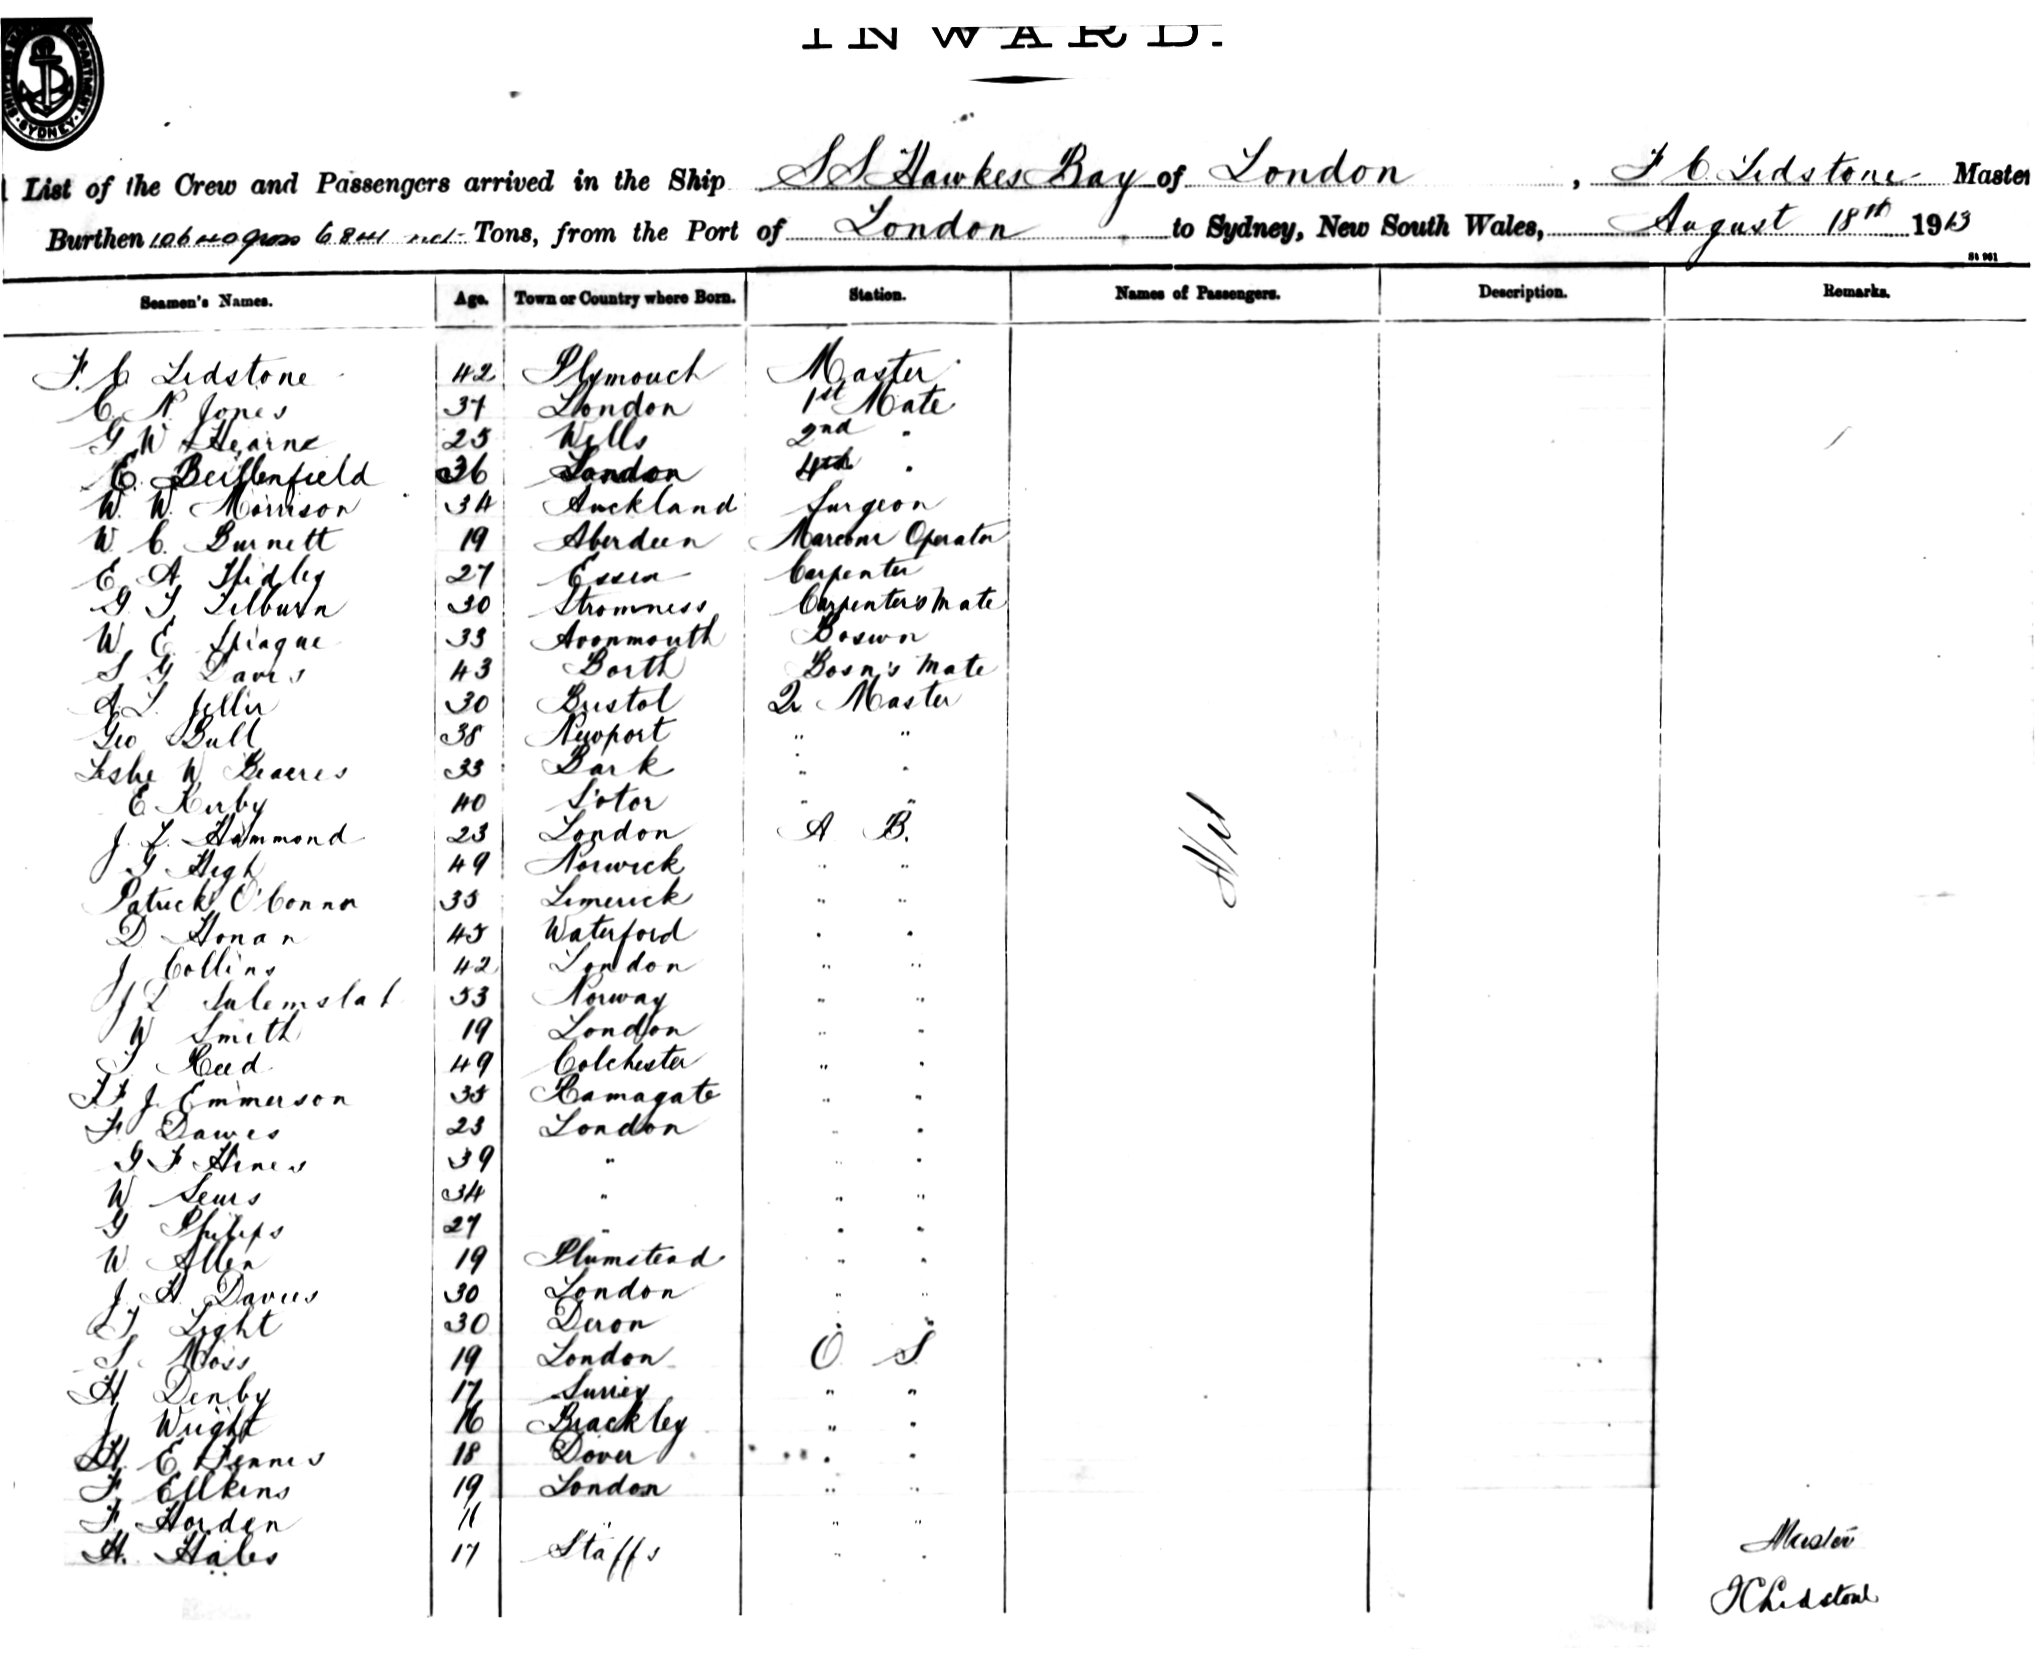 INWARD.
SYDNEY
List of the Crew and Passengers arrived in the Ship SS Hawkes Bay of London, F C Lidstone Master
Burthen 10640 gross 6841 net Tons, from the Port of London to Sydney, New South Wales, August 18th 1913
Seamen's Names. Age. Town or Country where Born. Station. Names of Passengers. Description. Remarks.
F. C Lidstone 42 Plymouth Master
C. N. Jones 37 London 1st Mate
G W Hearne 25 Wells 2nd "
E. 36 London 4th "
W. W. Morrison 34 Auckland Surgeon
W. C. Burnett 19 Aberdeen Marconi Operator
E A 27 Essex Carpenter
G. T. Tilburn 30 Stromness Carpenter's Mate
W E Sprague 33 Avonmouth Boswn
S G Davis 43 Borth Bosn's Mate
A. L. 30 Bristol Qr Master
Geo Bull 38 Newport " "
Leslie W 33 " "
E Kirby 40 " "
J. L. Hammond 23 London A B.
G High 49 Norwick " "
Patrick O'Connor 35 Limerick " "
D Honan 45 Waterford " "
J Collins 42 London " "
J L 53 Norway " "
W Smith 19 London " "
T Reed 49 Colchester " "
F J. Emmerson 35 Ramagate " "
F Dawes 23 London " "
G F Hines 39 " " "
W 34 " " "
G Philips 27 " " "
W Allen 19 Plumstead " "
J. H Davies 30 London " "
Light 30 Devon " "
S Moss 19 London O S
H Denby 17 Surrey " "
J Wright 16 Brackley " "
H. E Fennes 18 Dover " "
F Ellkins 19 London " "
F. Horden " " "
H. Hales 17 Staffs " "
Nil
Master
F C Lidstone